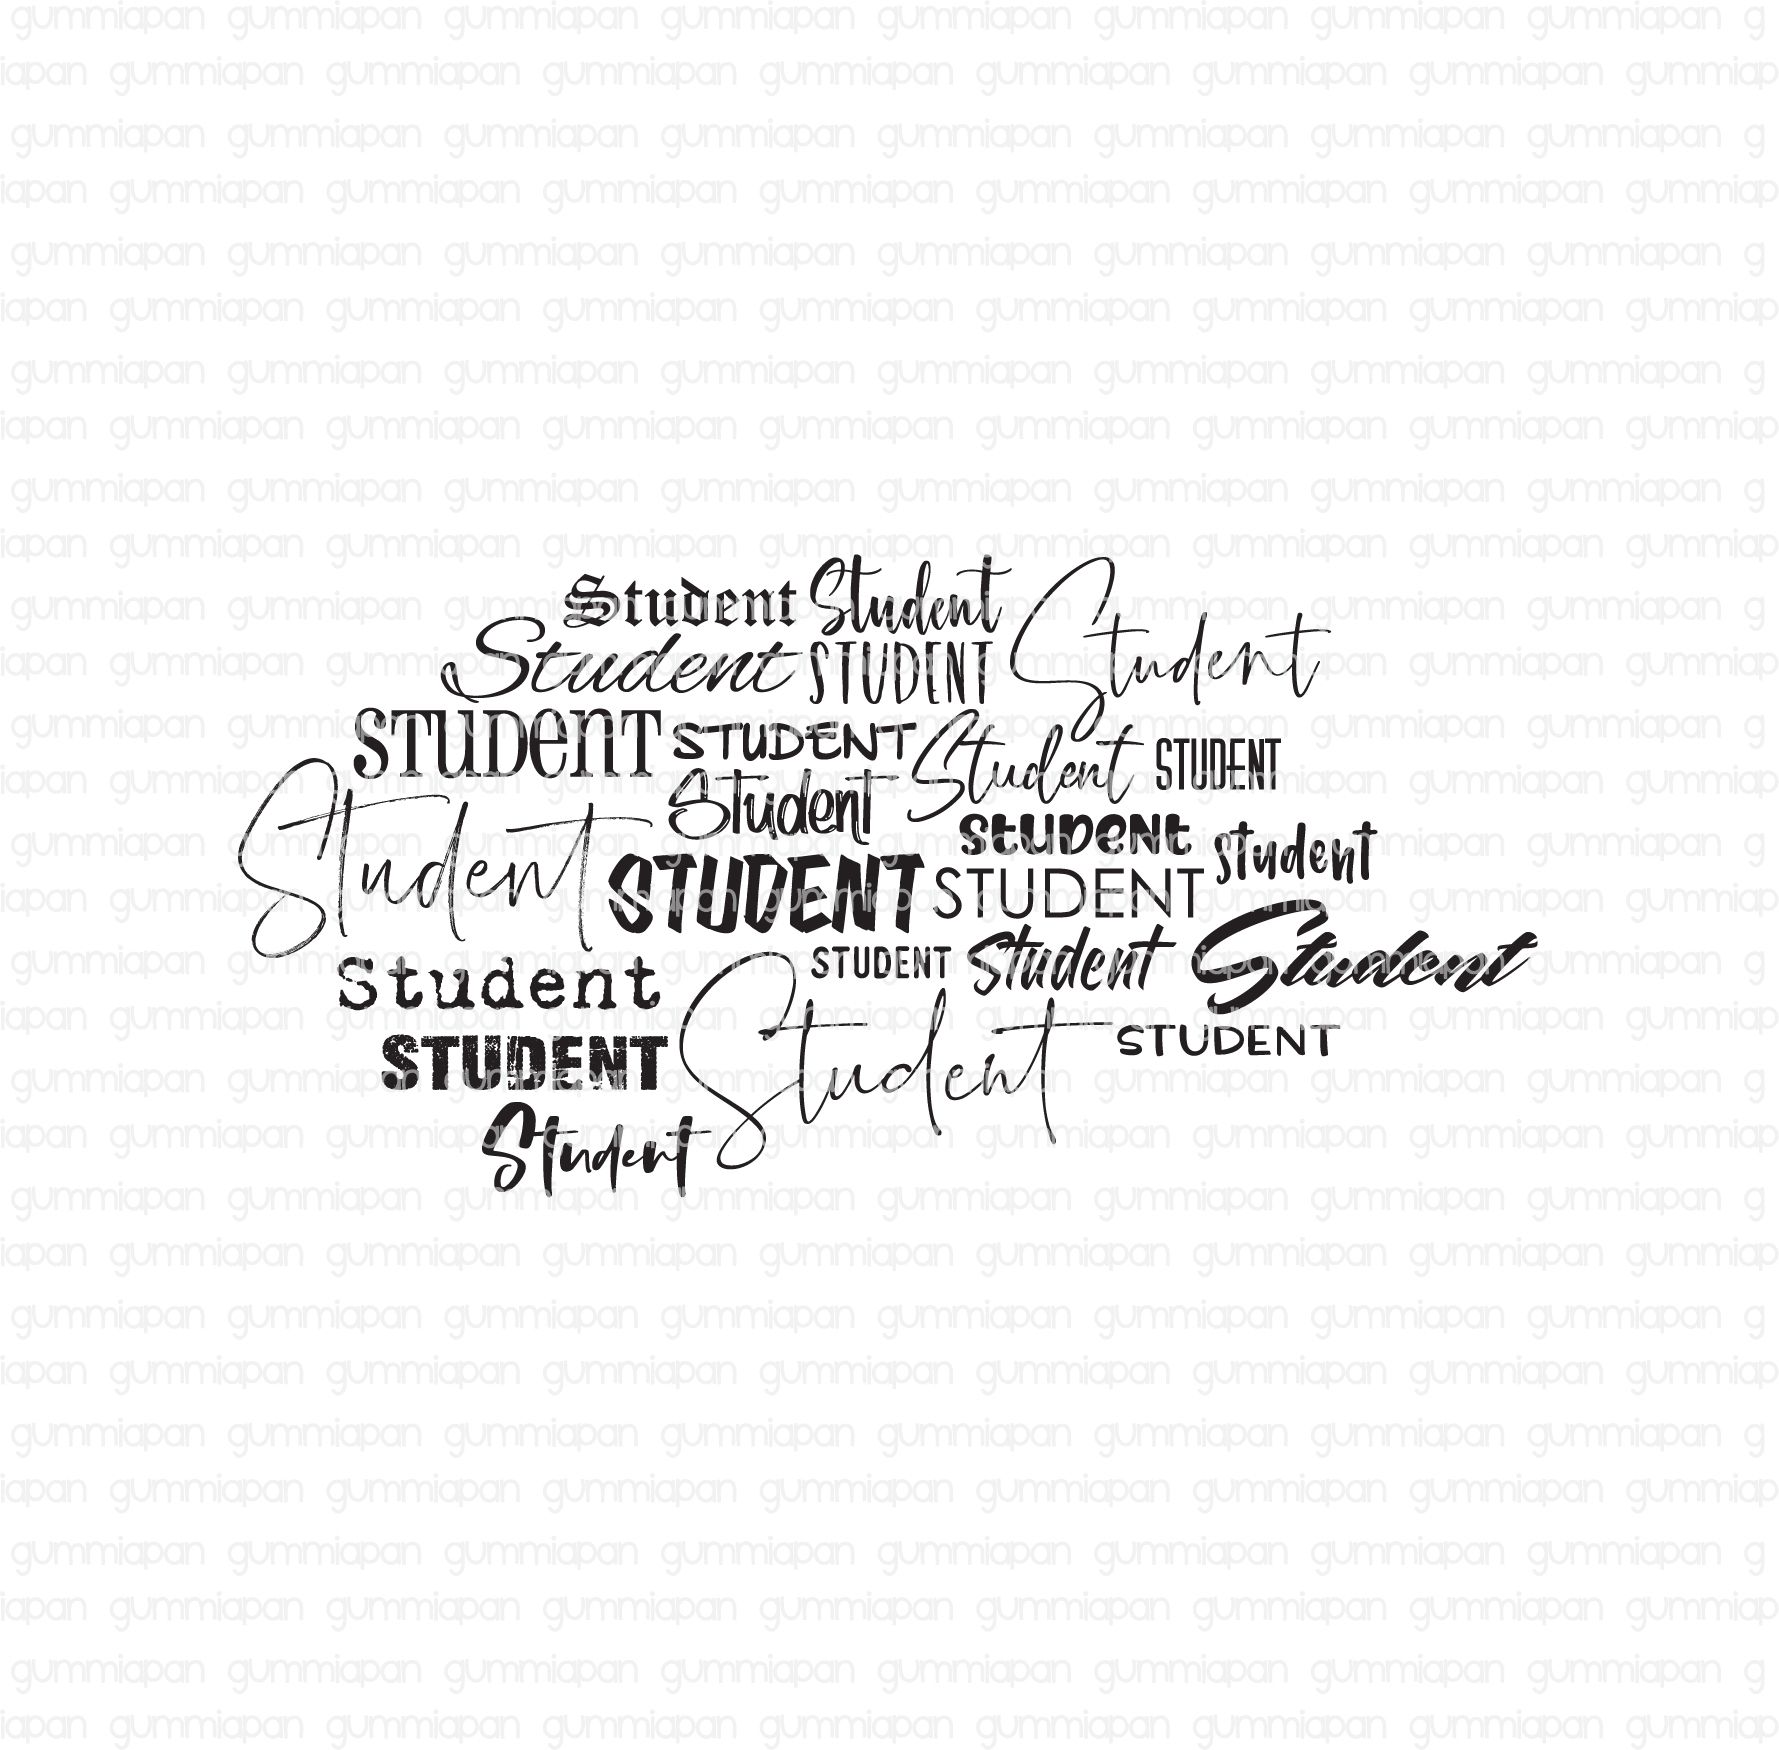 Student Student
Student STUDENT Student
STUDENT STUDENT Student STUDENT
Student Student STUDENT student
STUDENT STUDENT
Student STUDENT Student Student
STUDENT Student STUDENT
Student
gummiapan